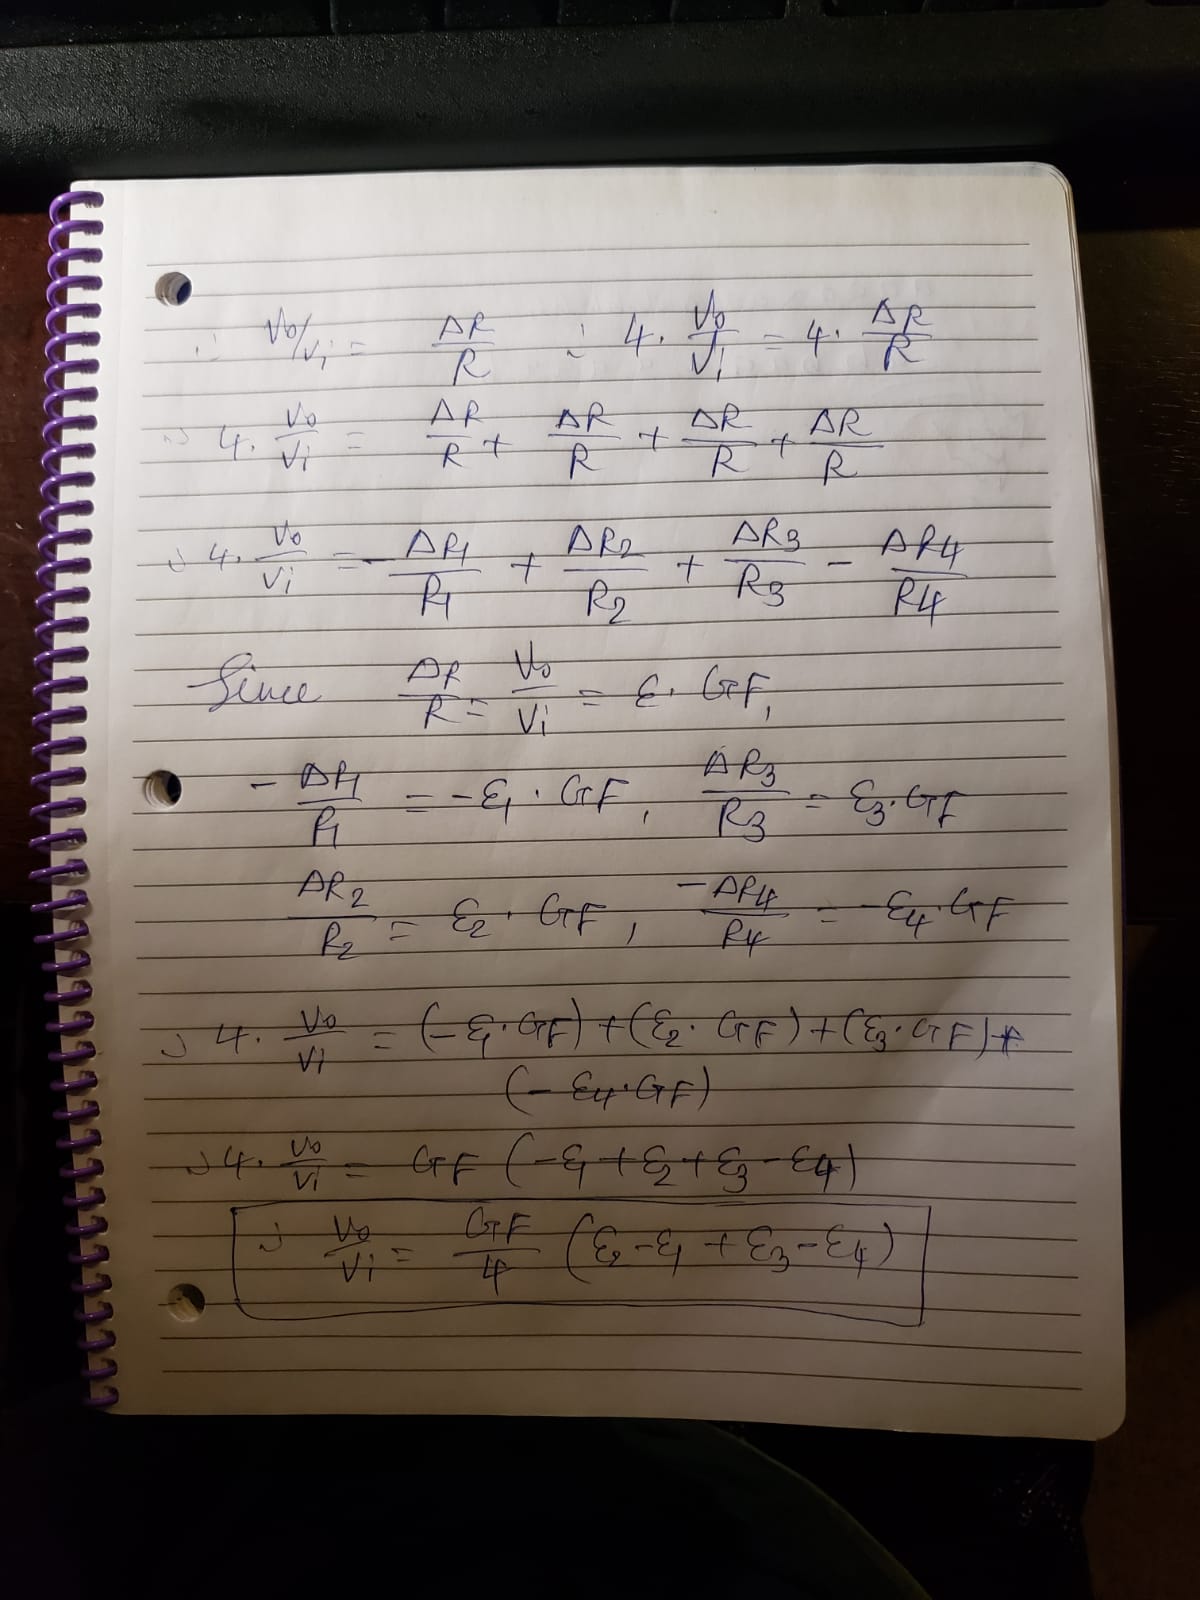 ∴ Vo/Vi = ΔR/R ∴ 4. Vo/Vi = 4. ΔR/R
∴ 4. Vo/Vi = ΔR/R + ΔR/R + ΔR/R + ΔR/R
∴ 4. Vo/Vi = - ΔR1/R1 + ΔR2/R2 + ΔR3/R3 - ΔR4/R4
Since ΔR/R = Vo/Vi = ε. GF,
- ΔR1/R1 = -ε1 . GF, ΔR3/R3 = ε3. GF
ΔR2/R2 = ε2 . GF, -ΔR4/R4 = -ε4. GF
∴ 4. Vo/Vi = (-ε1. GF) + (ε2. GF) + (ε3. GF) +
(- ε4. GF)
∴ 4. Vo/Vi = GF (-ε1 + ε2 + ε3 - ε4)
∴ Vo/Vi = GF/4 (ε2 - ε1 + ε3 - ε4)